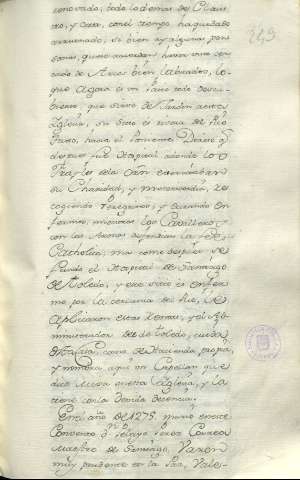 249
renovado, todo lo demas de Claus-
tro, y Casa, con el tiempo ha quedado
arruinado; si bien ay algunas per-
sonas, que se acuerdan haver visto cer-
cado de Arcos bien labrados, lo
que agora es un Patio todo descu-
bierto, que sirve de Jardin a esta
Yglesia, su sitio es cerca del Rio
hacia el Poniente
despues fue Hospital adonde los
Frayles de la Orn
su Charidad, y misericordia, re-
cogiendo Peregrinos, y curando en-
fermos, mientras los Cavalleros
con las Armas defendian la fee
Catholica; mas como despues se
fundó el Hospital de Santiago
de Toledo, y este sitio es enfer-
mo por la cercania del Rio, se
aplicaron estas Rentas, y el Ad-
ministrador del de Toledo, cuida
como de Hacienda propia,
y nombra aqui un Capellan que
dice Missa en esta Yglesia, y la
tiene con la devida decencia.
En el año de 1275 murio en este
Convento Dn. Pelayo Perez Correa
Maestre de Santiago, Varon
muy prudente en la Paz, Vale-